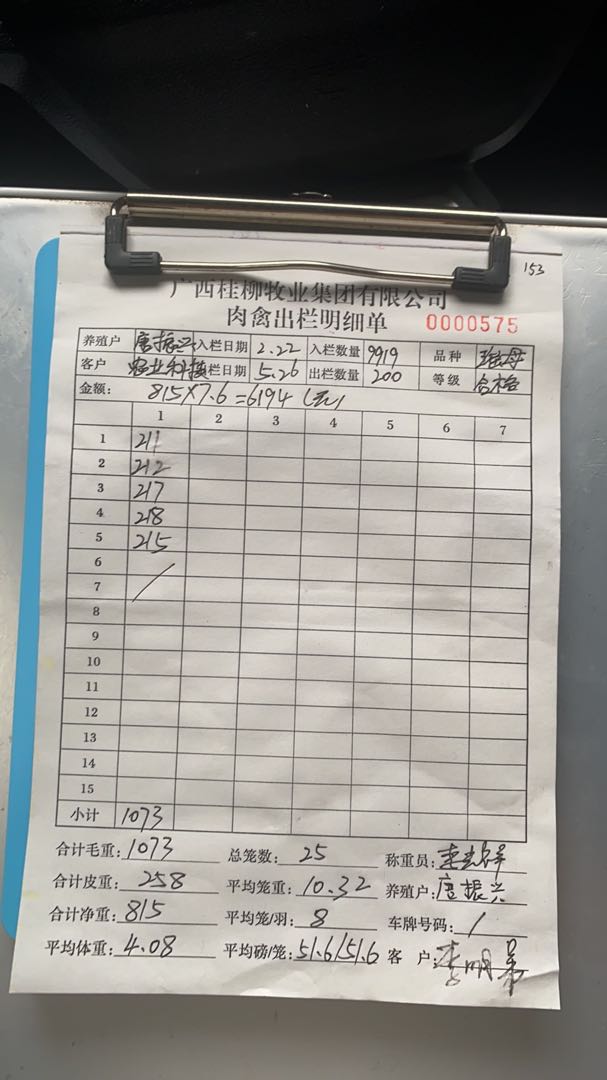 153
广西桂柳牧业集团有限公司
肉禽出栏明细单 0000575
养殖户 唐振兴 入栏日期 2.22 入栏数量 9919 品种
客户 农业科技 栏日期 5.26 出栏数量 200 等级 合格
金额: 815×7.6=6194(元)
1 2 3 4 5 6 7
1 211
2 212
3 217
4 218
5 215
6
7
8
9
10
11
12
13
14
15
小计 1073
合计毛重: 1073 总笼数: 25 称重员:
合计皮重: 258 平均笼重: 10.32 养殖户: 唐振兴
合计净重: 815 平均笼/羽: 8 车牌号码: /
平均体重: 4.08 平均磅/笼: 51.6/51.6 客户: 李明